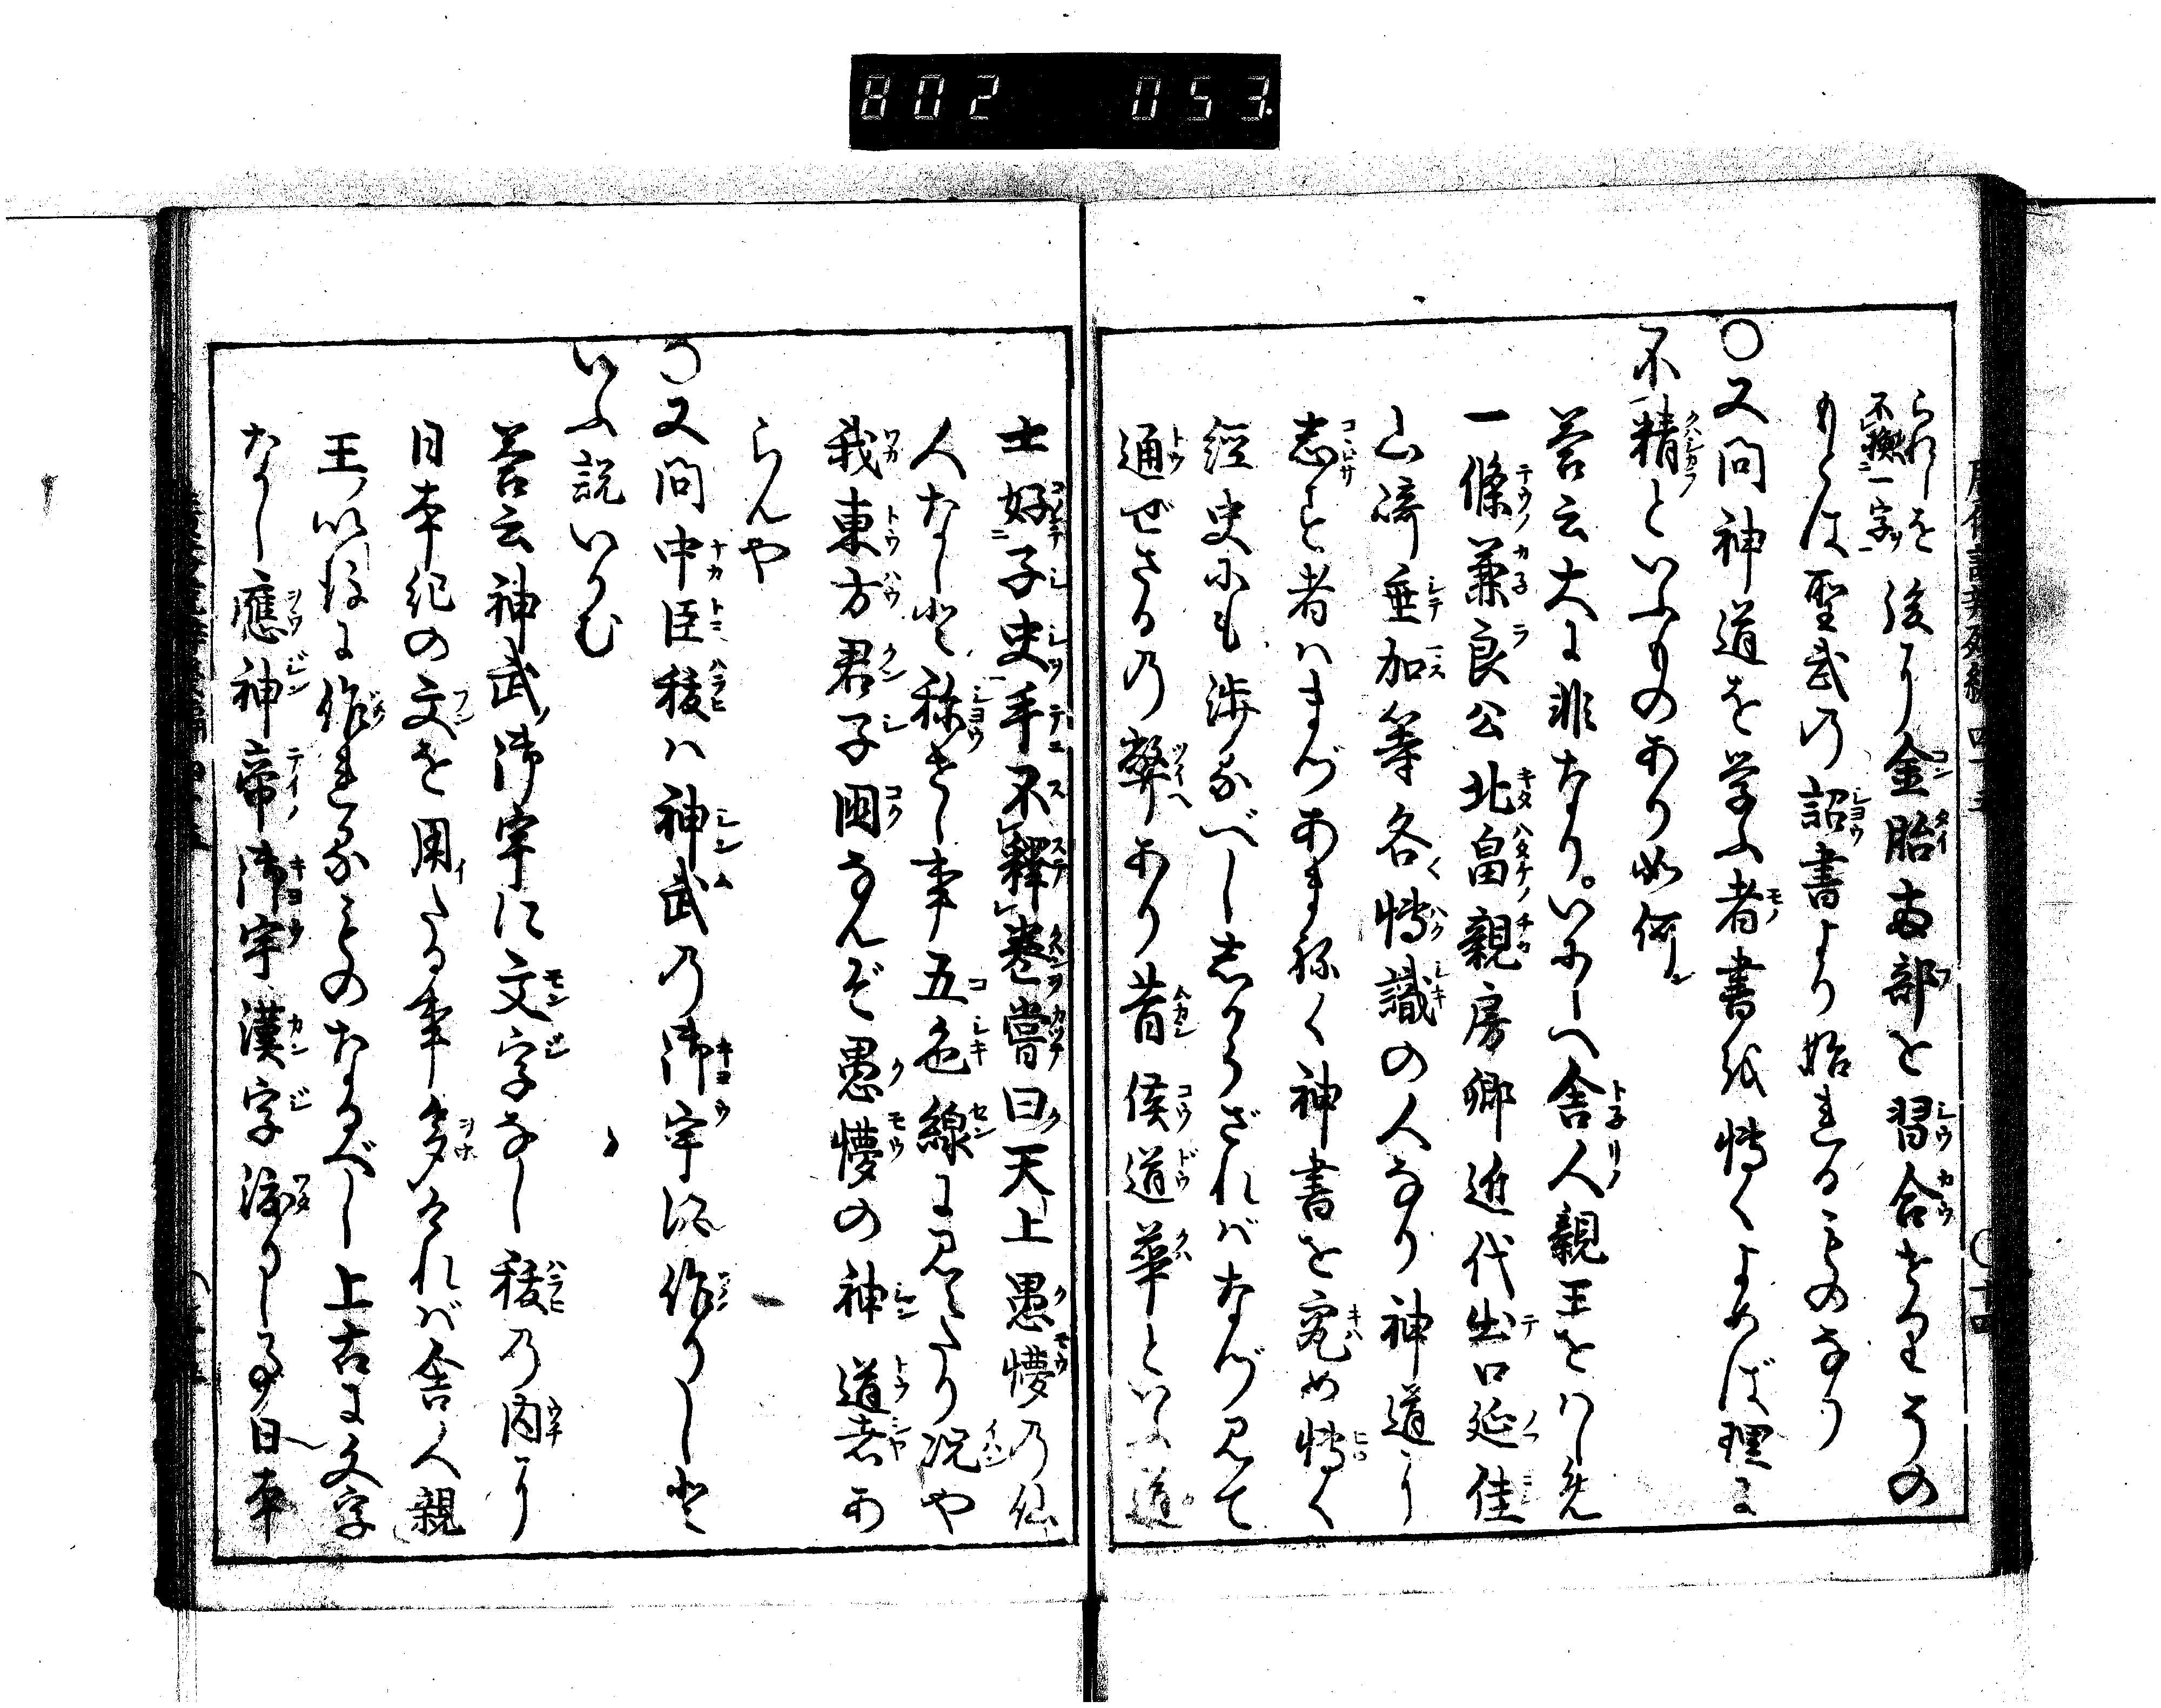 802 053
られしを後に金胎両部を習合せりその
不撫二一字一
もとは聖武の詔書より始れるものなり
〇又問神道を学ふ者書紙博くよめば理に
不精といふものあり如何ン
答云大に非なりいにしへ舎人親王をはしめ
一條兼良公北畠親房卿近代出口延佳
山﨑垂加等各博識の人なり神道に
志す者ハまづあまねく神書を究め博く
經史にも渉るべし志からざればなづみて
通ぜざるの弊あり昔侯道華といふ道
士好子史手不釋巻嘗曰天上愚懵の仙
人なしと称せし事五色線に見へたり况や
我東方君子國なんぞ愚懵の神道者あ
らんや
〇又問中臣祓ハ神武の御宇に作りしと
いふ説いかむ
答云神武ノ御宇に文字なし祓の内に
日本紀の文を用イたる事多ければ舎人親
王ノ以後に作れるものなるべし上古に文字
なし應神帝ノ御宇漢字渡りし事日本